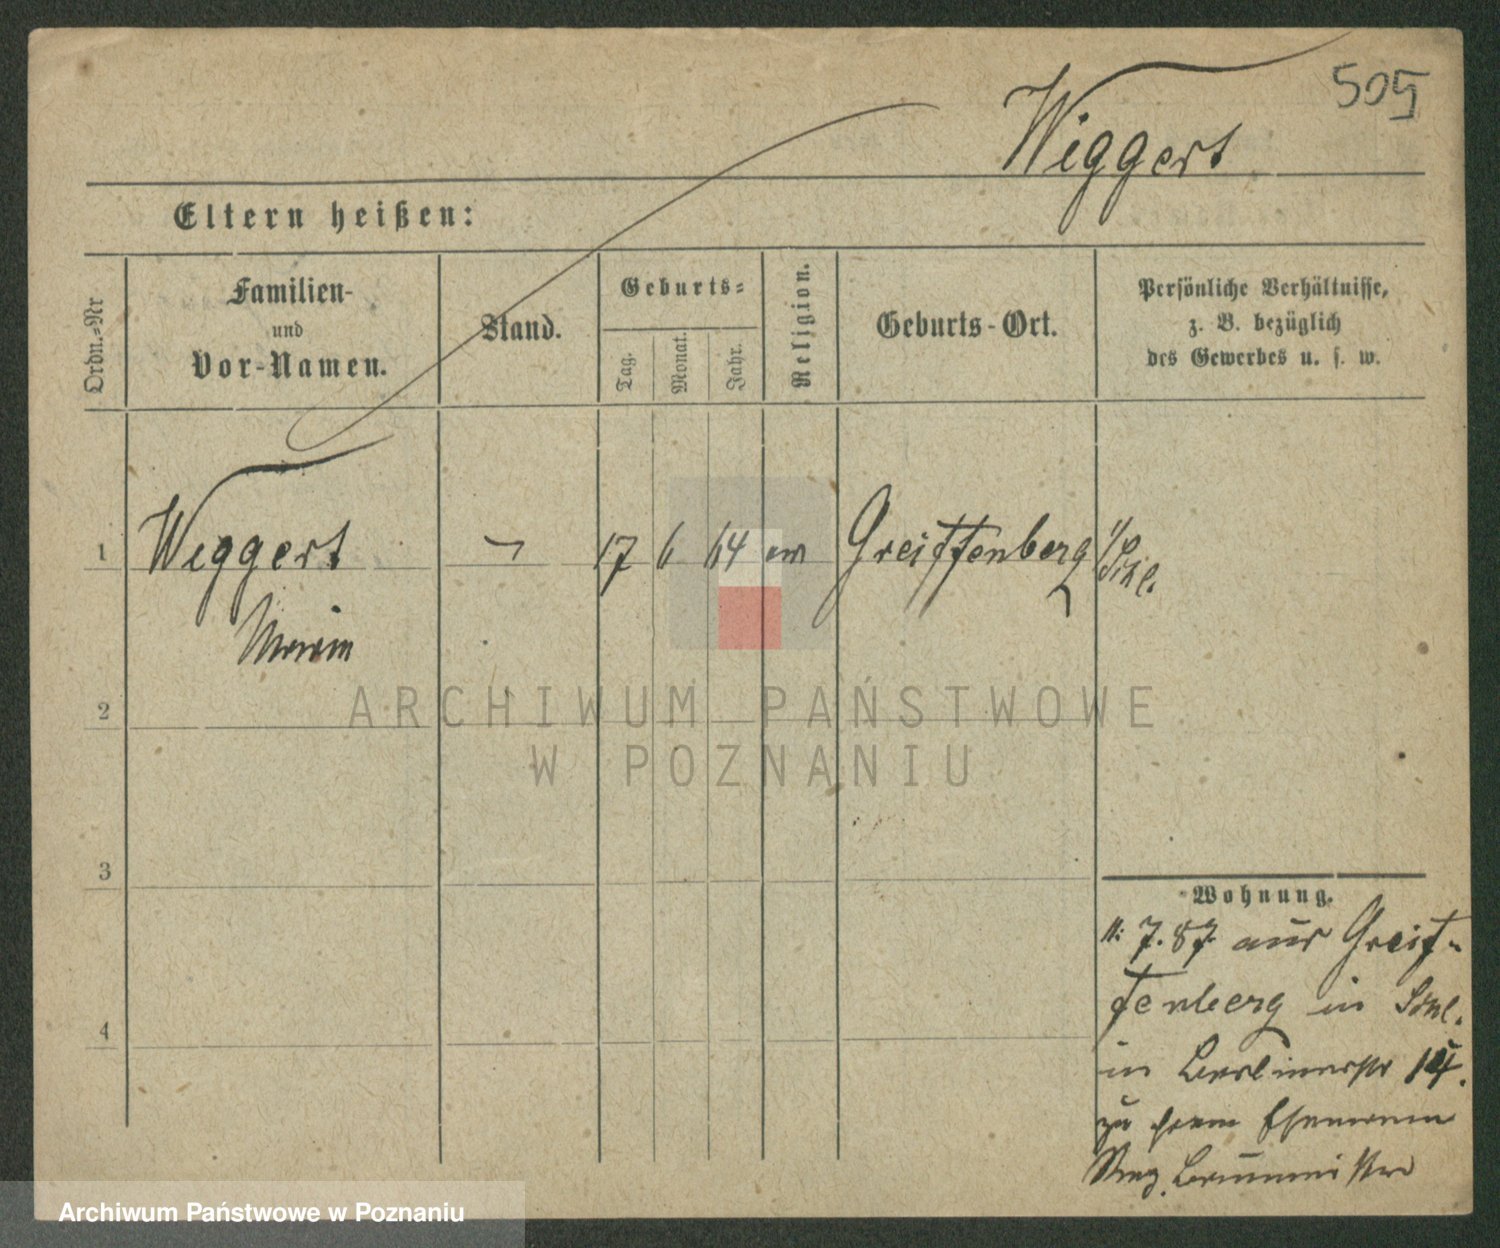 505
Wiggert
Eltern heißen:
Ordn.-Nr
Familien-
und
Vor-Namen.
Stand.
Geburts-
Tag.
Monat.
Jahr.
Religion.
Geburts-Ort.
Persönliche Verhältnisse,
z. B. bezüglich
des Gewerbes u. s. w.
1 Wiggert 17 6 64 ev Greiffenberg i/Schl.
Maria
2
3
4
Wohnung.
11. 7. 87 aus Greif-
fenberg in Schl.
in Berlinerstr
zu ihrem Ehemann
Reg. Baumeister
ARCHIWUM PAŃSTWOWE
W POZNANIU
Archiwum Państwowe w Poznaniu